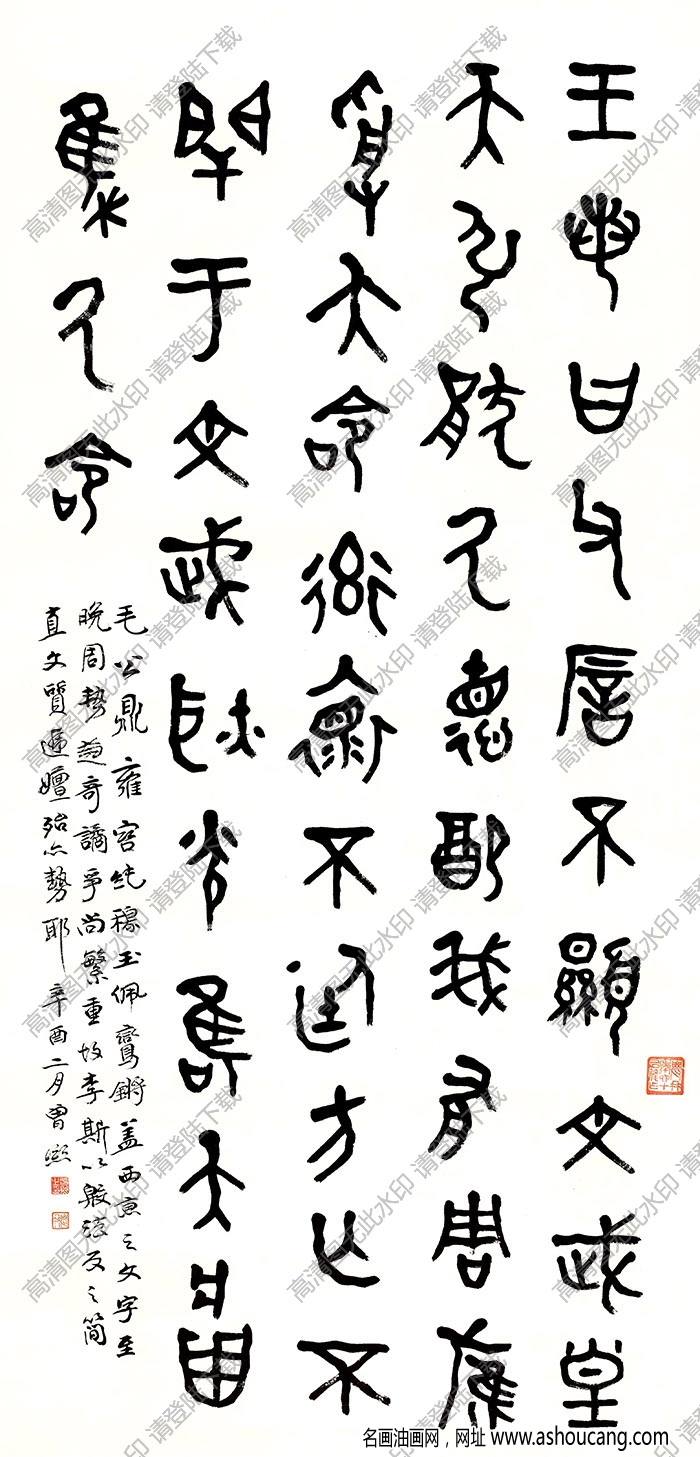 王若曰父厝不顯文武皇
天弘猒氒德配我有周膺
受大命率褱不廷方亡不
閈于文武耿光唯天將
集氒命
毛公鼎雍容純穆玉佩鸞鏘蓋西京之文字至
晚周勢益奇譎爭尚繁重故李斯以反之簡
直文質遞嬗殆亦勢耶 辛酉二月曾熙
高清图无此水印 请登陆下载
名画油画网，网址 www.ashoucang.com